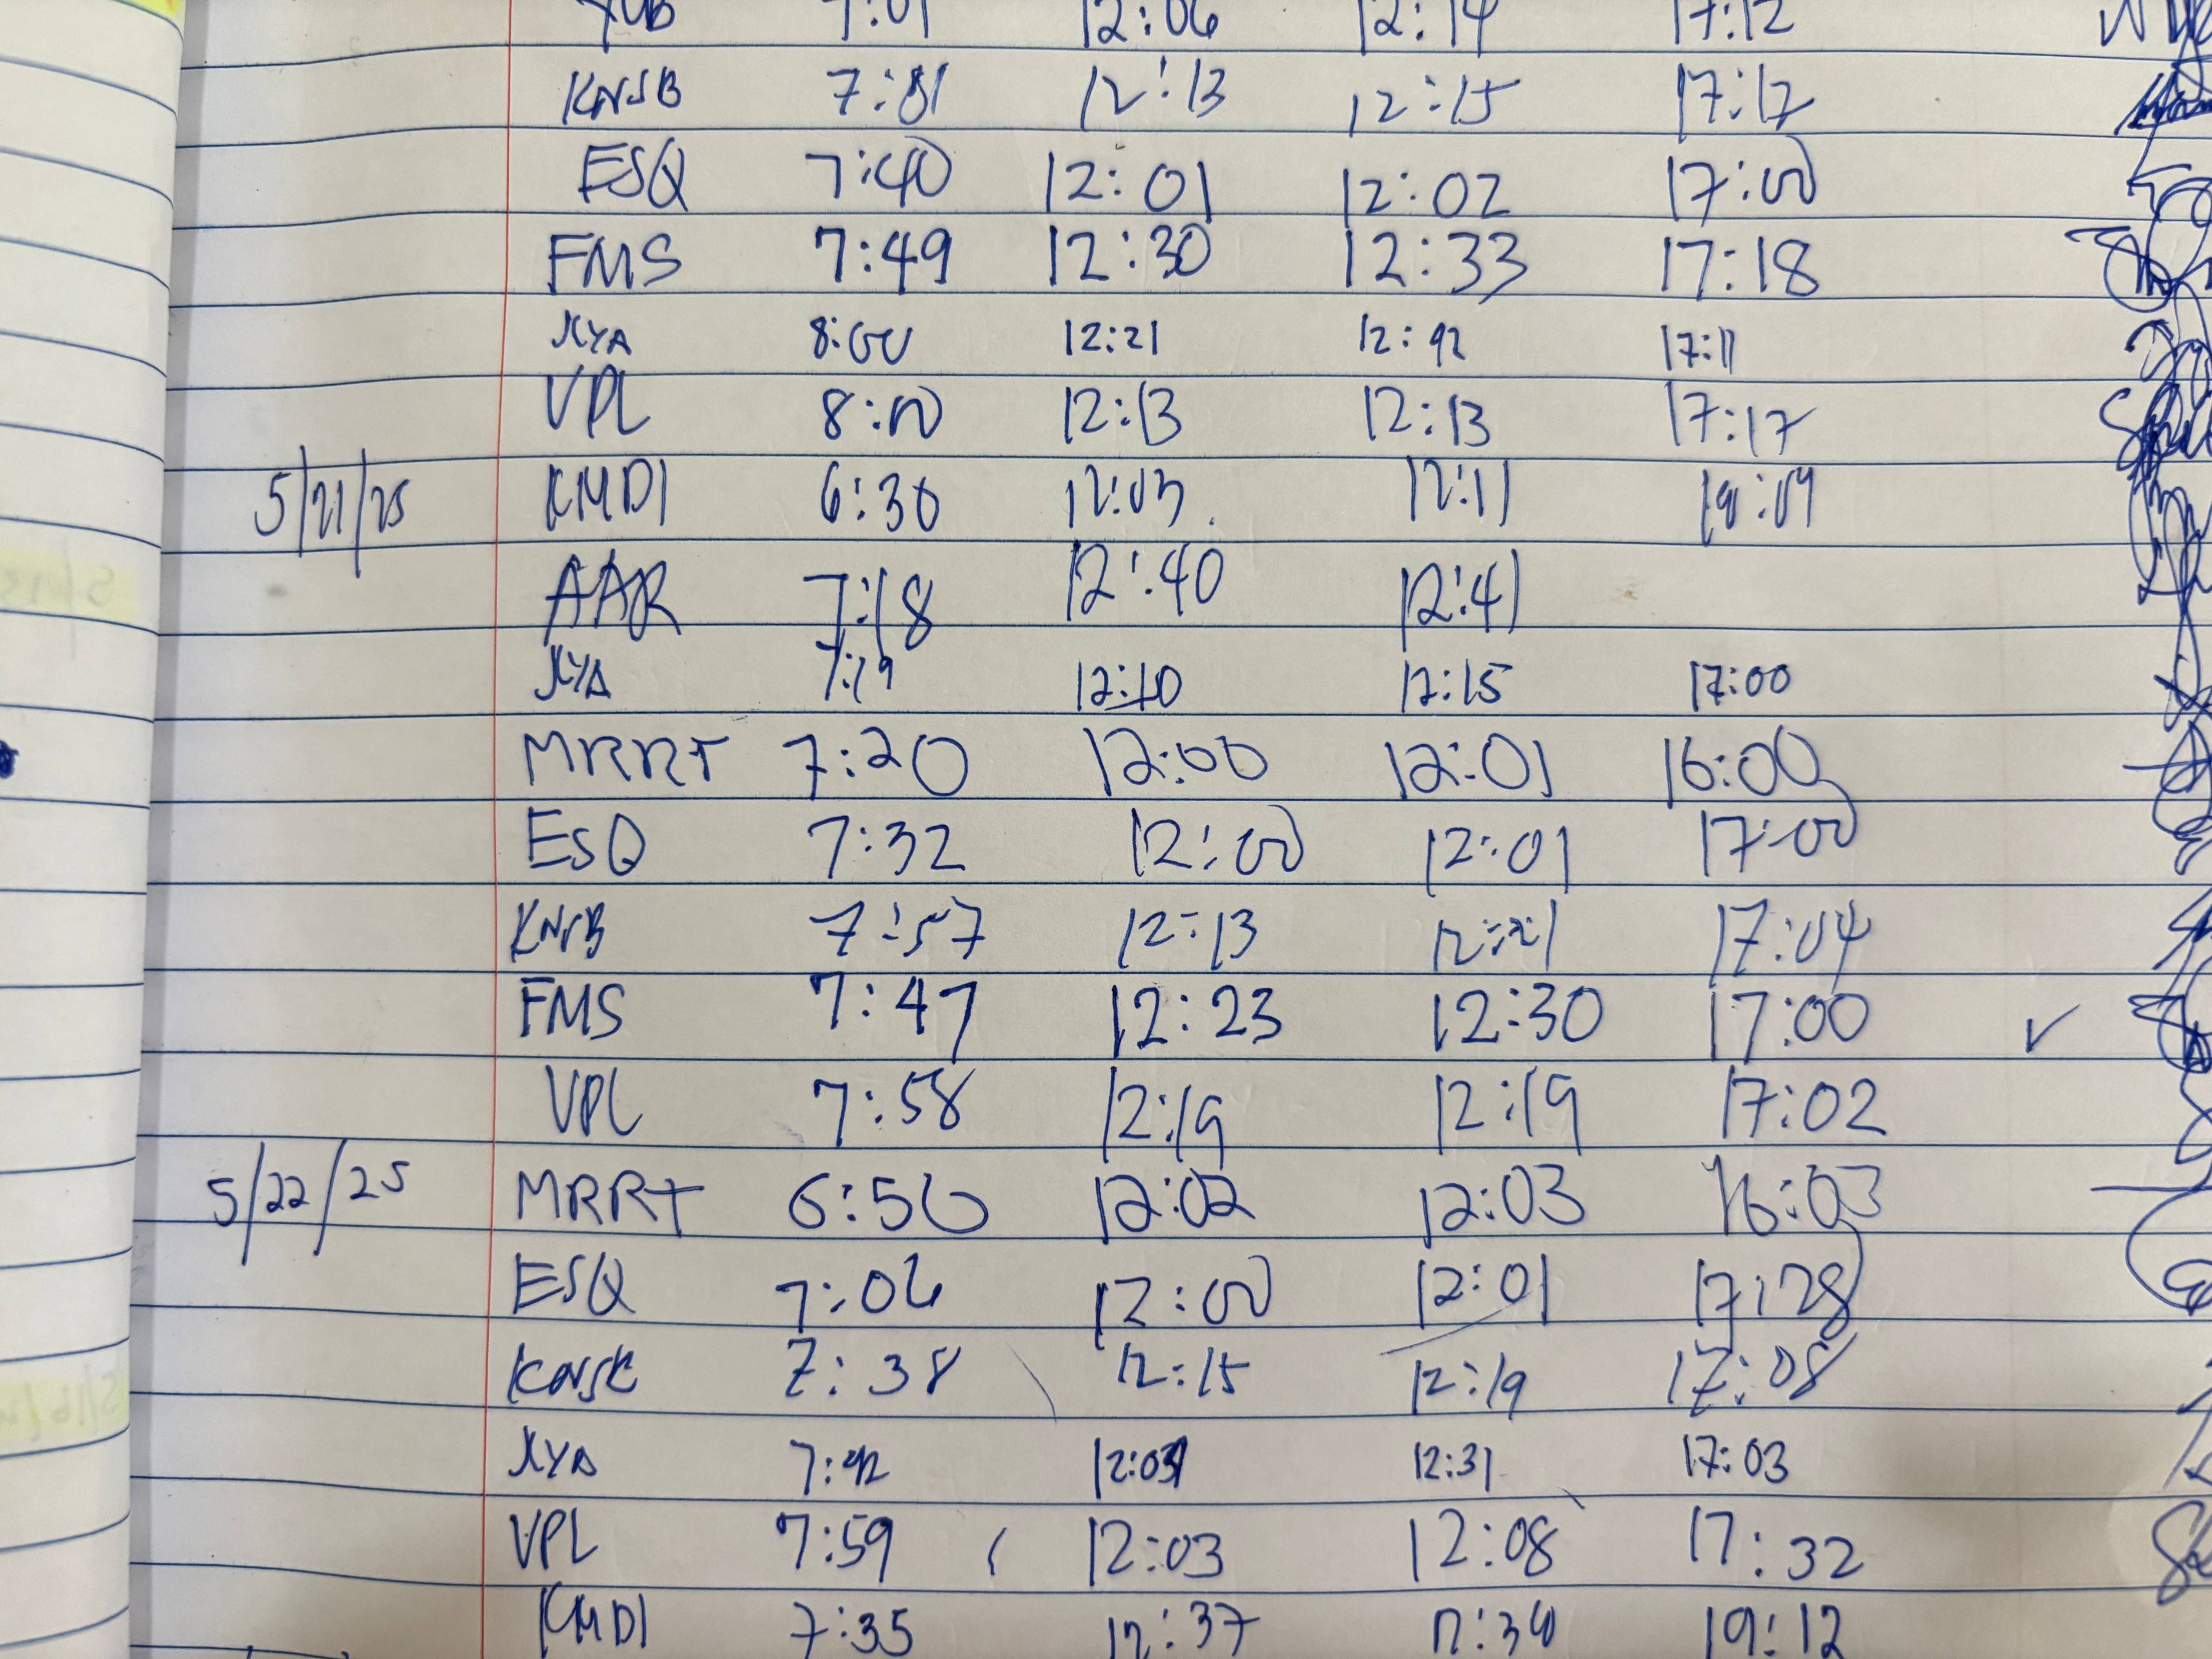 7:01 12:06 12:14 17:12
KNSB 7:81 12:13 12:15 17:17
ESQ 7:40 12:01 12:02 17:00
FMS 7:49 12:30 12:33 17:18
KYA 8:00 12:21 12:42 17:11
VPL 8:00 12:13 12:13 17:17
5/21/25 KMDI 6:30 12:03 12:11
AAR 7:18 12:40 12:41
KYA 7:19 12:10 12:15 17:00
MRRT 7:20 12:00 12:01 16:00
ESQ 7:32 12:00 12:01 17:00
KNSB 7:57 12:13 12:21 17:04
FMS 7:47 12:23 12:30 17:00 ✓
VPL 7:58 12:19 12:19 17:02
5/22/25 MRRT 6:50 12:02 12:03 16:03
ESQ 7:06 12:00 12:01 17:28
7:38 12:15 12:19 17:08
KYA 7:42 12:31 17:03
VPL 7:59 12:03 12:08 17:32
KMDI 7:35 12:37 19:12